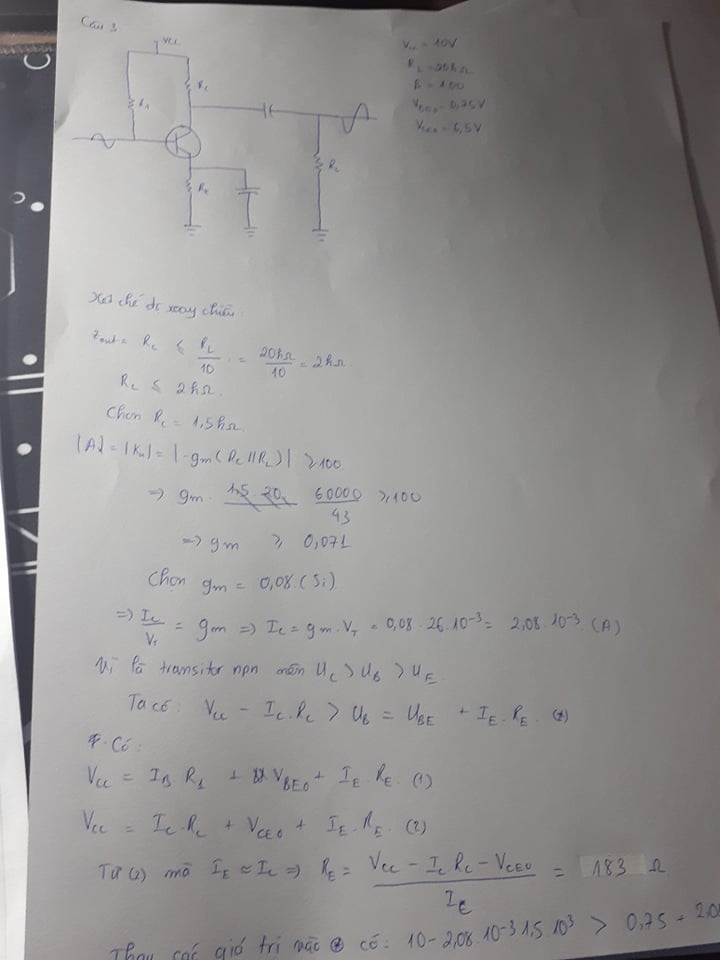 Câu 3
VCC
RC
R1
RE
RL
Vcc = 10V
RL = 20kΩ
B = 100
VBEO = 0,75V
VCEO = 6,5V
Xét chế độ xoay chiều:
Zout = Rc ≤ RL/10 = 20kΩ/10 = 2kΩ.
Rc ≤ 2kΩ.
Chọn Rc = 1,5kΩ.
|A| = |Ku| = |-gm(Rc//RL)| ≥ 100.
=> gm. 60000/43 ≥ 100
=> gm ≥ 0,071
Chọn gm = 0,08.(Si)
=> Ic/VT = gm => Ic = gm.VT = 0,08.26.10⁻³ = 2,08.10⁻³.(A)
Vì là transitor npn nên UC > UB > UE.
Ta có: VCC - IC.RC > UB = UBE + IE.RE.(*)
Có:
VCC = IB R1 + VBEO + IE.RE. (1)
VCC = IC.RC + VCEO + IE.RE. (2)
Từ (2) mà IE ≈ IC => RE = (VCC - IC RC - VCEO)/IE = 183 Ω
Thay các giá trị vào có: 10 - 2,08.10⁻³ 1,5 10³ > 0,75 +